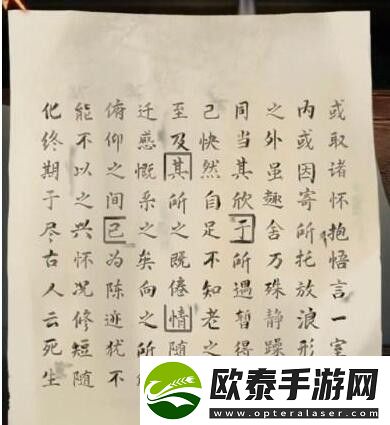 或取诸怀抱悟言一室
内或因寄所托放浪形
之外虽趣舍万殊静躁
同当其欣于所遇暂得
己快然自足不知老之
至及其所之既倦情随
迁感慨系之矣向之所
俯仰之间已为陈迹犹不
能不以之兴怀况修短随
化终期于尽古人云死生
欧泰手游网
www.opteralaser.com